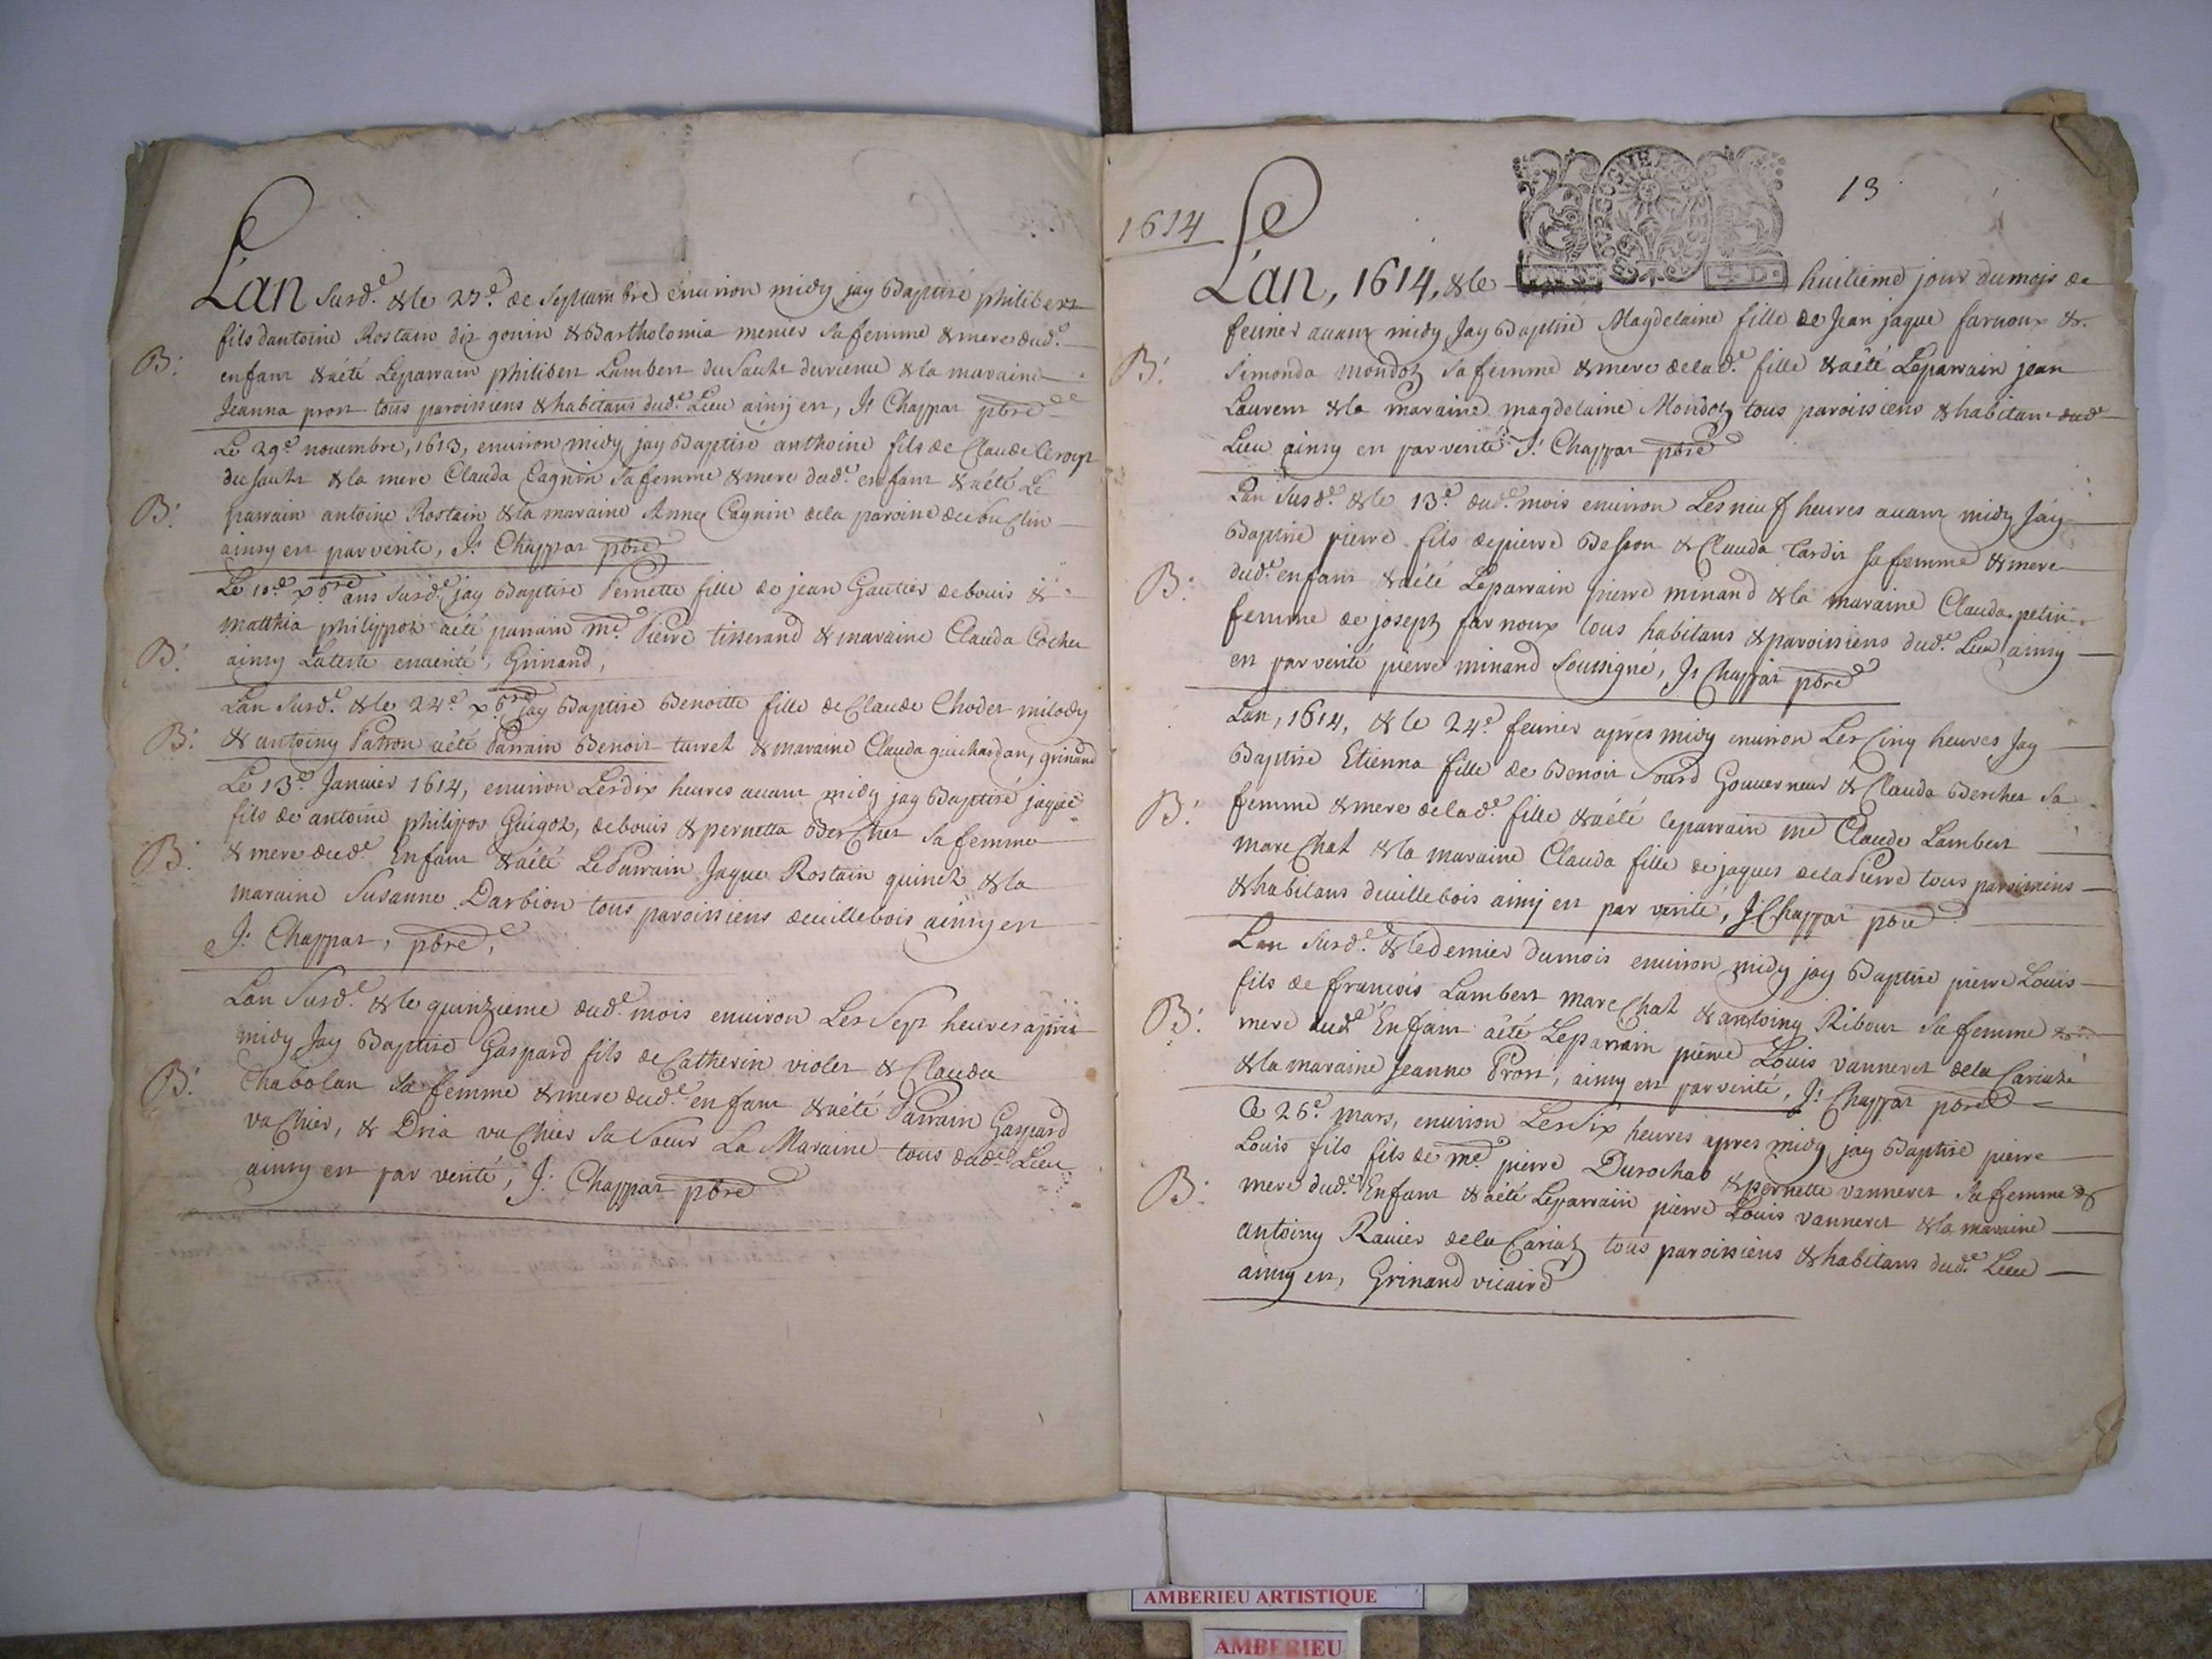 L'an susd.e & le 27.e de Septambre enuiron midy jay Baptisé philibert
fils dantoine Rostain dit gonin & Bartholomia menier sa femme & mere dud.e
B. enfant & aété Leparrain philibert Lambert du Sault & la maraine
Jeanna prost tous paroissiens & habitans dud.e Lieu ainsy est, J: Chappat pbre
Le 29.e nouembre, 1613, enuiron midy jay Baptisé anthoine fils de Claude
du sault & la mere Clauda Cagnin sa femme & mere dud.e enfant & aété Le
B. parrain antoine Rostain & la maraine Anne Cagnin dela paroisse
ainsy est par verite, J: Chappat pbre
Le 10.e xbre ans susd.e jay Baptise Pernette fille de jean Gautier debouis &
matthia philippot aété parrain me. Pierre tisserand & maraine Clauda Cochet
B. ainsy Lateste enuerité, Grinand,
Lan susd.e & le 24.e xbre jay Baptisé Benoitte fille de Claude Chodet milody
B. & antoiny Patron aété Parrain Benoit & maraine Clauda guichardan, grinand
Le 13.e Januier 1614, enuiron Lesdix heures auant midy jay Baptisé jaque
fils de antoine philipot Guigot, debouis & pernetta Berchet sa femme
B. & mere dud.e Enfant & aété LeParrain Jaque Rostain quinet & la
maraine Susanne Darbion tous paroissiens deuillebois ainsy est
J: Chappat, pbre,
Lan Susd.e & le quinzieme dud.e mois enuiron Les Sept heures apres
midy Jay Baptisé Gaspard fils de Catherin violet & Clauda
B. Chabolan sa femme & mere dud.e enfant & aété Parrain Gaspard
vachier, & Dria vachier sa Soeur La Maraine tous dud.e Lieu
ainsy est par verité, J: Chappat pbre
13
1614
L'an, 1614, & le huitieme jour dumois de
feurier auant midy Jay Baptisé Magdelaine fille de Jean jaque farnoux &
B. simonda mondot sa femme & mere delad.e fille & aété Leparrain jean
Laurent & la maraine magdelaine Mondot tous paroissiens & habitans dud.e
Lieu ainsy est par verité J: Chappat pbre
Lan susd.e & le 13.e dud.e mois enuiron Les neuf heures auant midy Jay
Baptisé pierre fils depierre Besson & Clauda Tardit sa femme & mere
B. dud.e enfant & aété Leparrain pierre minand & la maraine Clauda
femme de joseph farnoux tous habitans & paroissiens dud.e Lieu ainsy
est par verité pierre minand Soussigné, J: Chappat pbre
Lan, 1614, & le 24.e feurier apres midy enuiron Les Cinq heures Jay
Baptisé Etienna fille de Benoit Sourd Gouuerneur & Clauda Berchet sa
B. femme & mere delad.e fille & aété leparrain me Claude Lambert
mareChal & la maraine Clauda fille de jaques delaPierre tous paroissiens
& habitans deuillebois ainsy est par verité, J: Chappat pbre
Lan susd.e & ledernier dumois enuiron midy jay Baptisé pierre Louis
fils de francois Lambert mareChal & antoiny Ribout sa femme &
B. mere dud.e Enfant aété Leparrain pierre Louis vanneret dela Cariat
& la maraine Jeanne Prost, ainsy est par verité, J: Chappat pbre
Ce 26.e mars, enuiron Les Six heures apres midy jay Baptisé pierre
Louis fils fils de me. pierre Durochat & pernette vanneret sa femme &
B. mere dud.e Enfant & aété Leparrain pierre Louis vanneret & la maraine
antoiny Rauier dela Cariat tous paroissiens & habitans dud.e Lieu
ainsy est, Grinand vicaire
AMBERIEU ARTISTIQUE
AMBERIEU